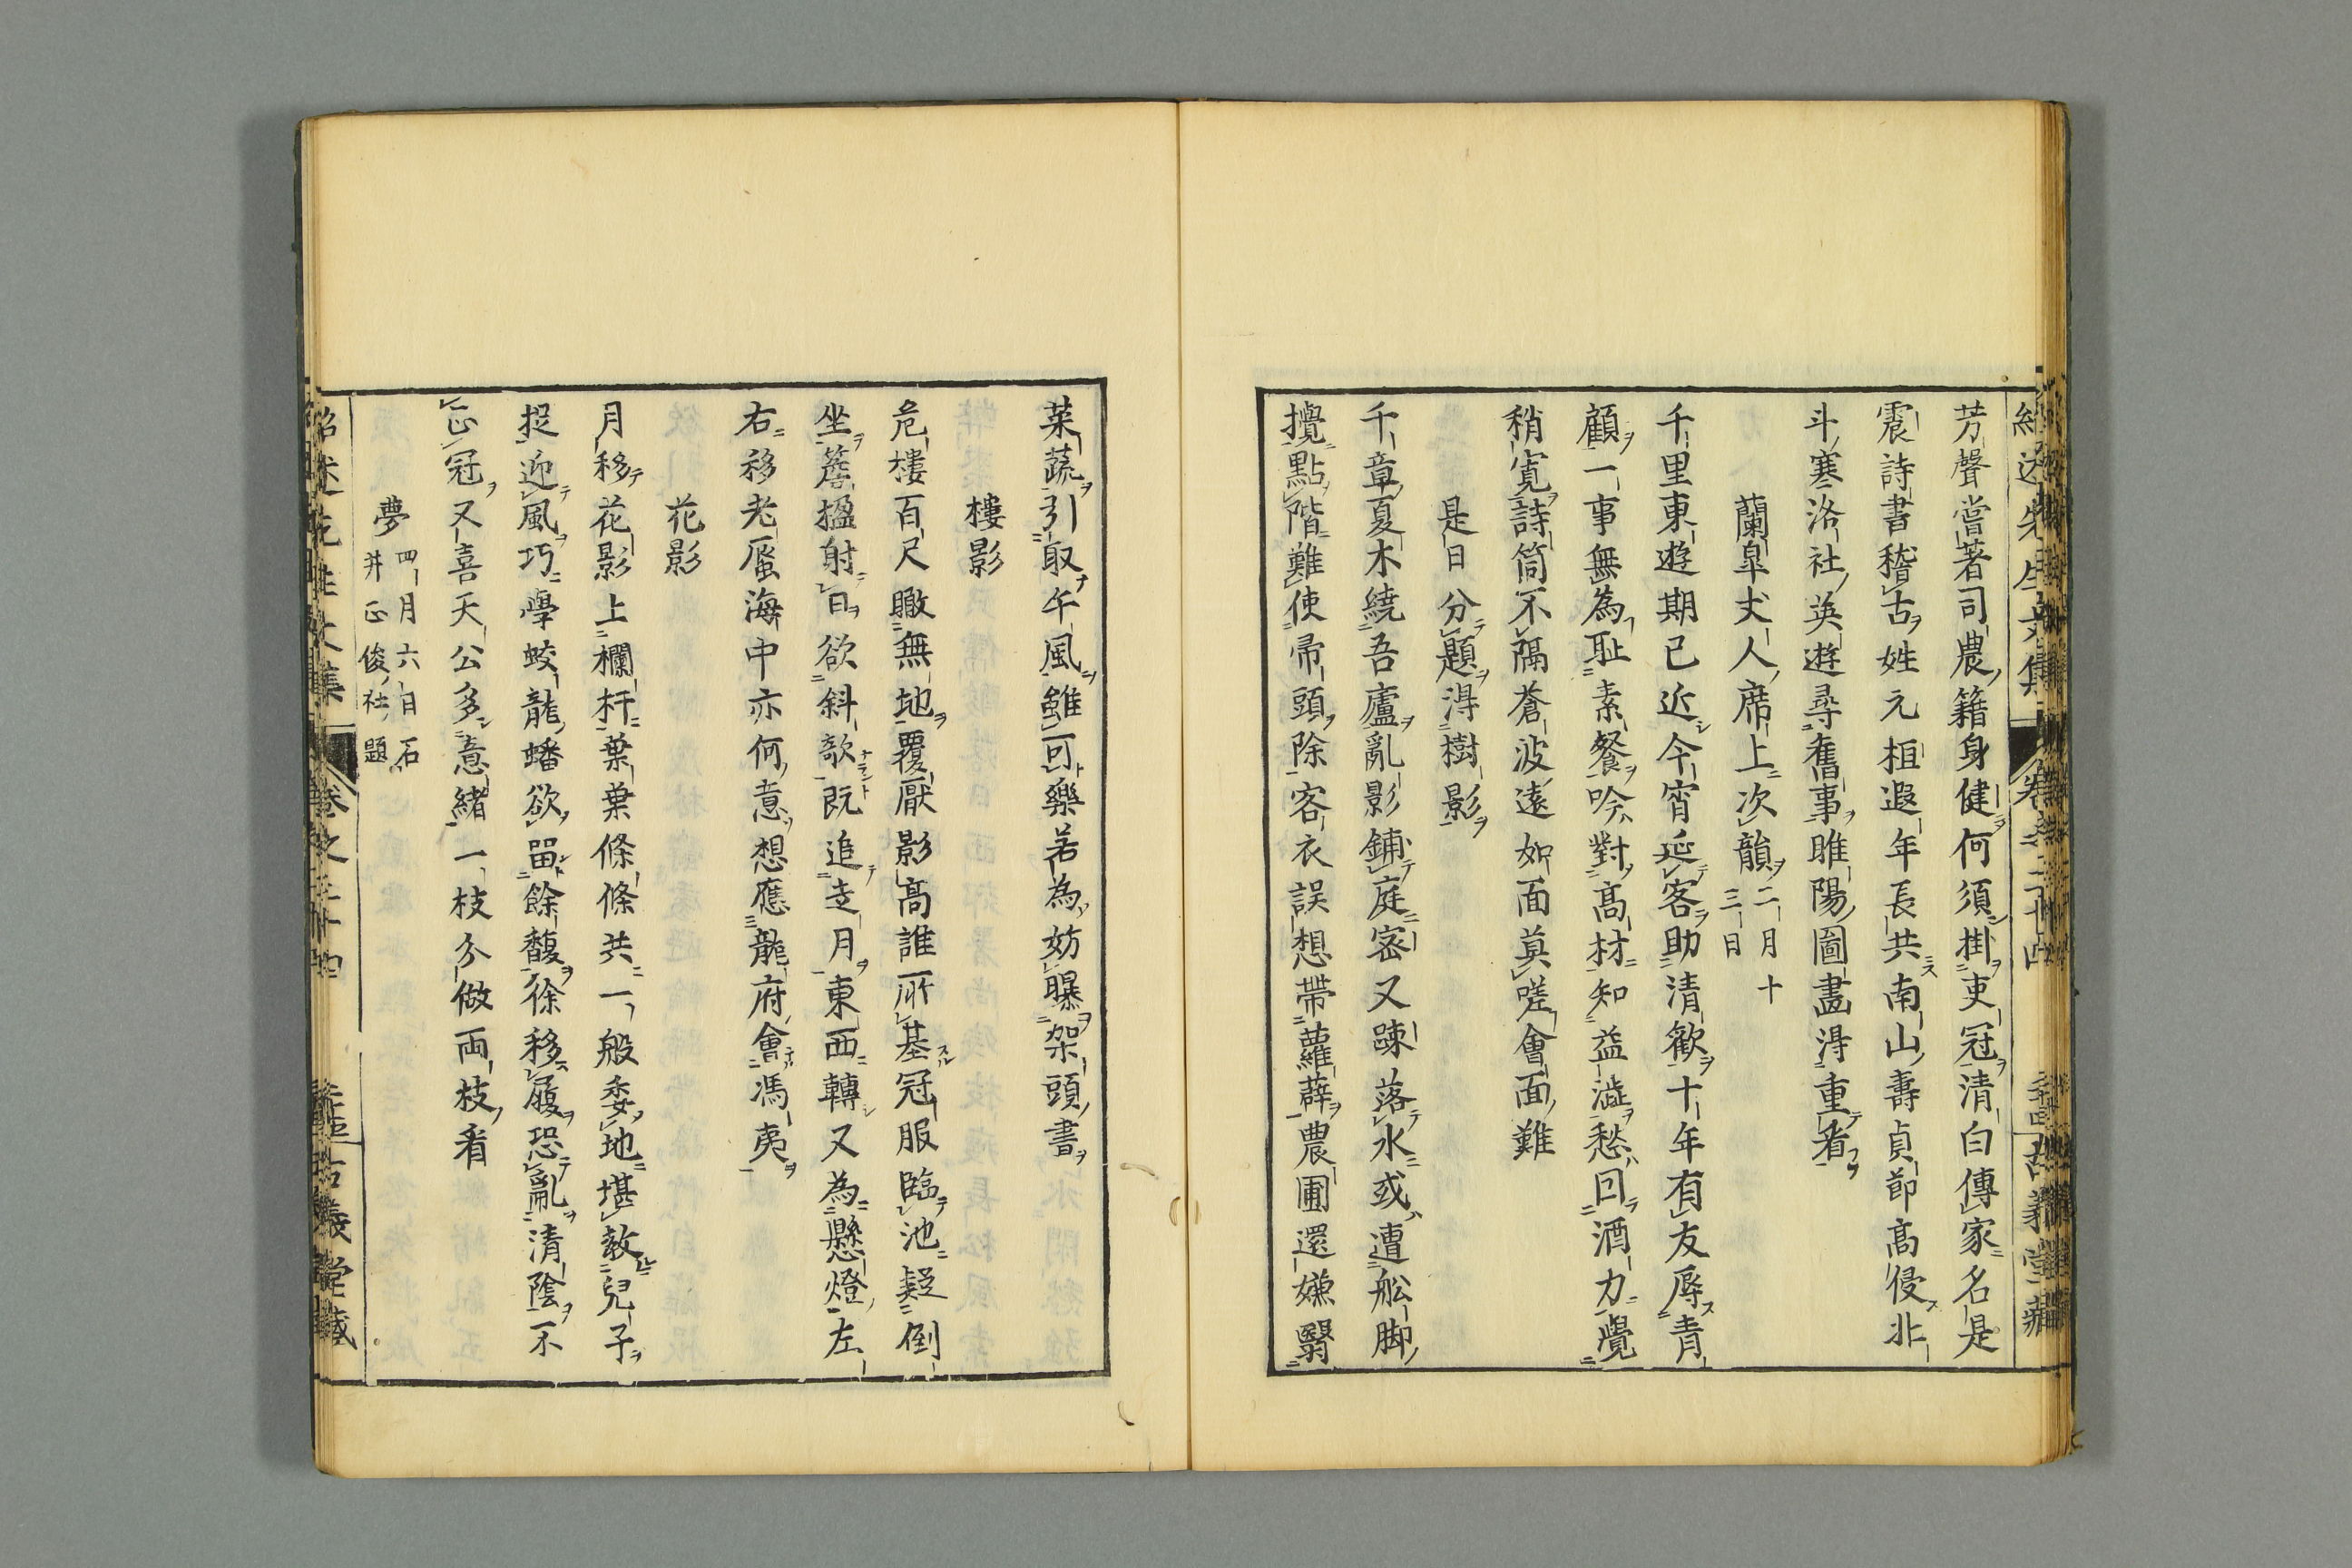 芳聲嘗著司農籍身健何須掛吏冠清白傳家名是
震詩書稽古姓元桓遐年長共南山壽貞節高侵北
斗寒洛社英遊尋舊事睢陽圖畫得重看
蘭皐丈人席上次韻二月十
三日
千里東遊期已近今宵延客助清歡十年有友辱青
顧一事無為耻素餐吟對高材知益澁愁回酒力覺
稍寛詩筒不隔蒼波遠如面莫嗟會面難
是日分題得樹影
千章夏木繞吾廬亂影鋪庭密又踈落水或遭舩脚
攪點階難使帚頭除客衣誤想帶蘿薜農圃還嫌翳
菜蔬引取午風雖可樂若為妨曝架頭書
樓影
危樓百尺瞰無地覆厭影高誰所基冠服臨池疑倒
坐簷楹射日欲斜欹既追走月東西轉又為懸燈左
右移老蜃海中亦何意想應龍府會馮夷
花影
月移花影上欄杆葉葉條條共一般委地堪教兒子
捉迎風巧學蛟龍蟠欲留餘馥徐移履恐亂清陰不
正冠又喜天公多意緒一枝分做両枝看
夢四月六日石
井正俊社題
紹述先生文集
卷之二十四
古義堂藏